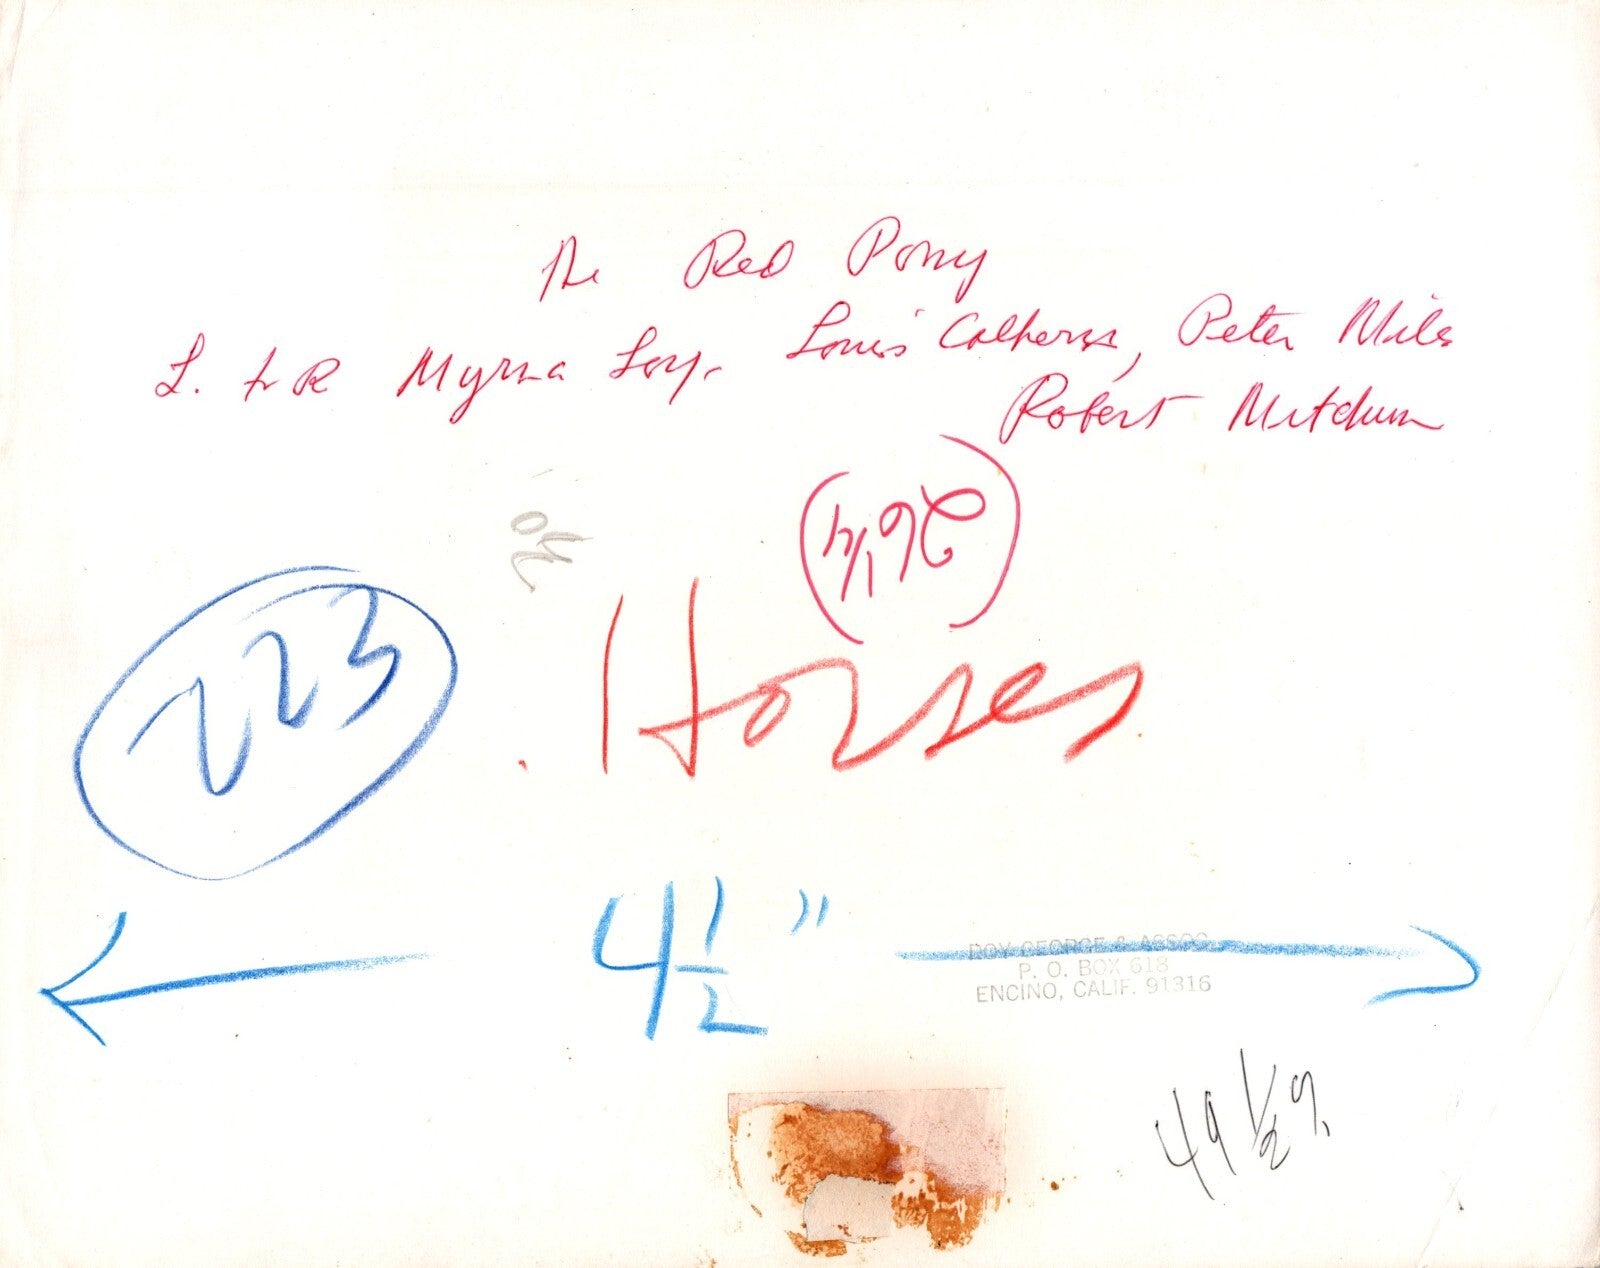 The Red Pony
L. to R Myrna Loy, Louis Calherns, Peter Miles
Robert Mitchum
(26 1/4)
ok
223
Horses
4 1/2 "
ROY GEORGE & ASSOC.
P. O. BOX 618
ENCINO, CALIF. 91316
49 1/2 %